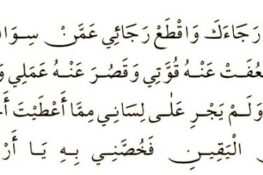 رَجَاءَكَ وَاقْطَعْ رَجَائِي عَمَّنْ سِوَا
عُفَتْ عَنْهُ قُوَّتِي وَقَصُرَ عَنْهُ عَمَلِي وَ
وَلَمْ يَجْرِ عَلَى لِسَانِي مِمَّا أَعْطَيْتَ أَ
الْيَقِينِ فَخُصَّنِي بِهِ يَا أَرْ